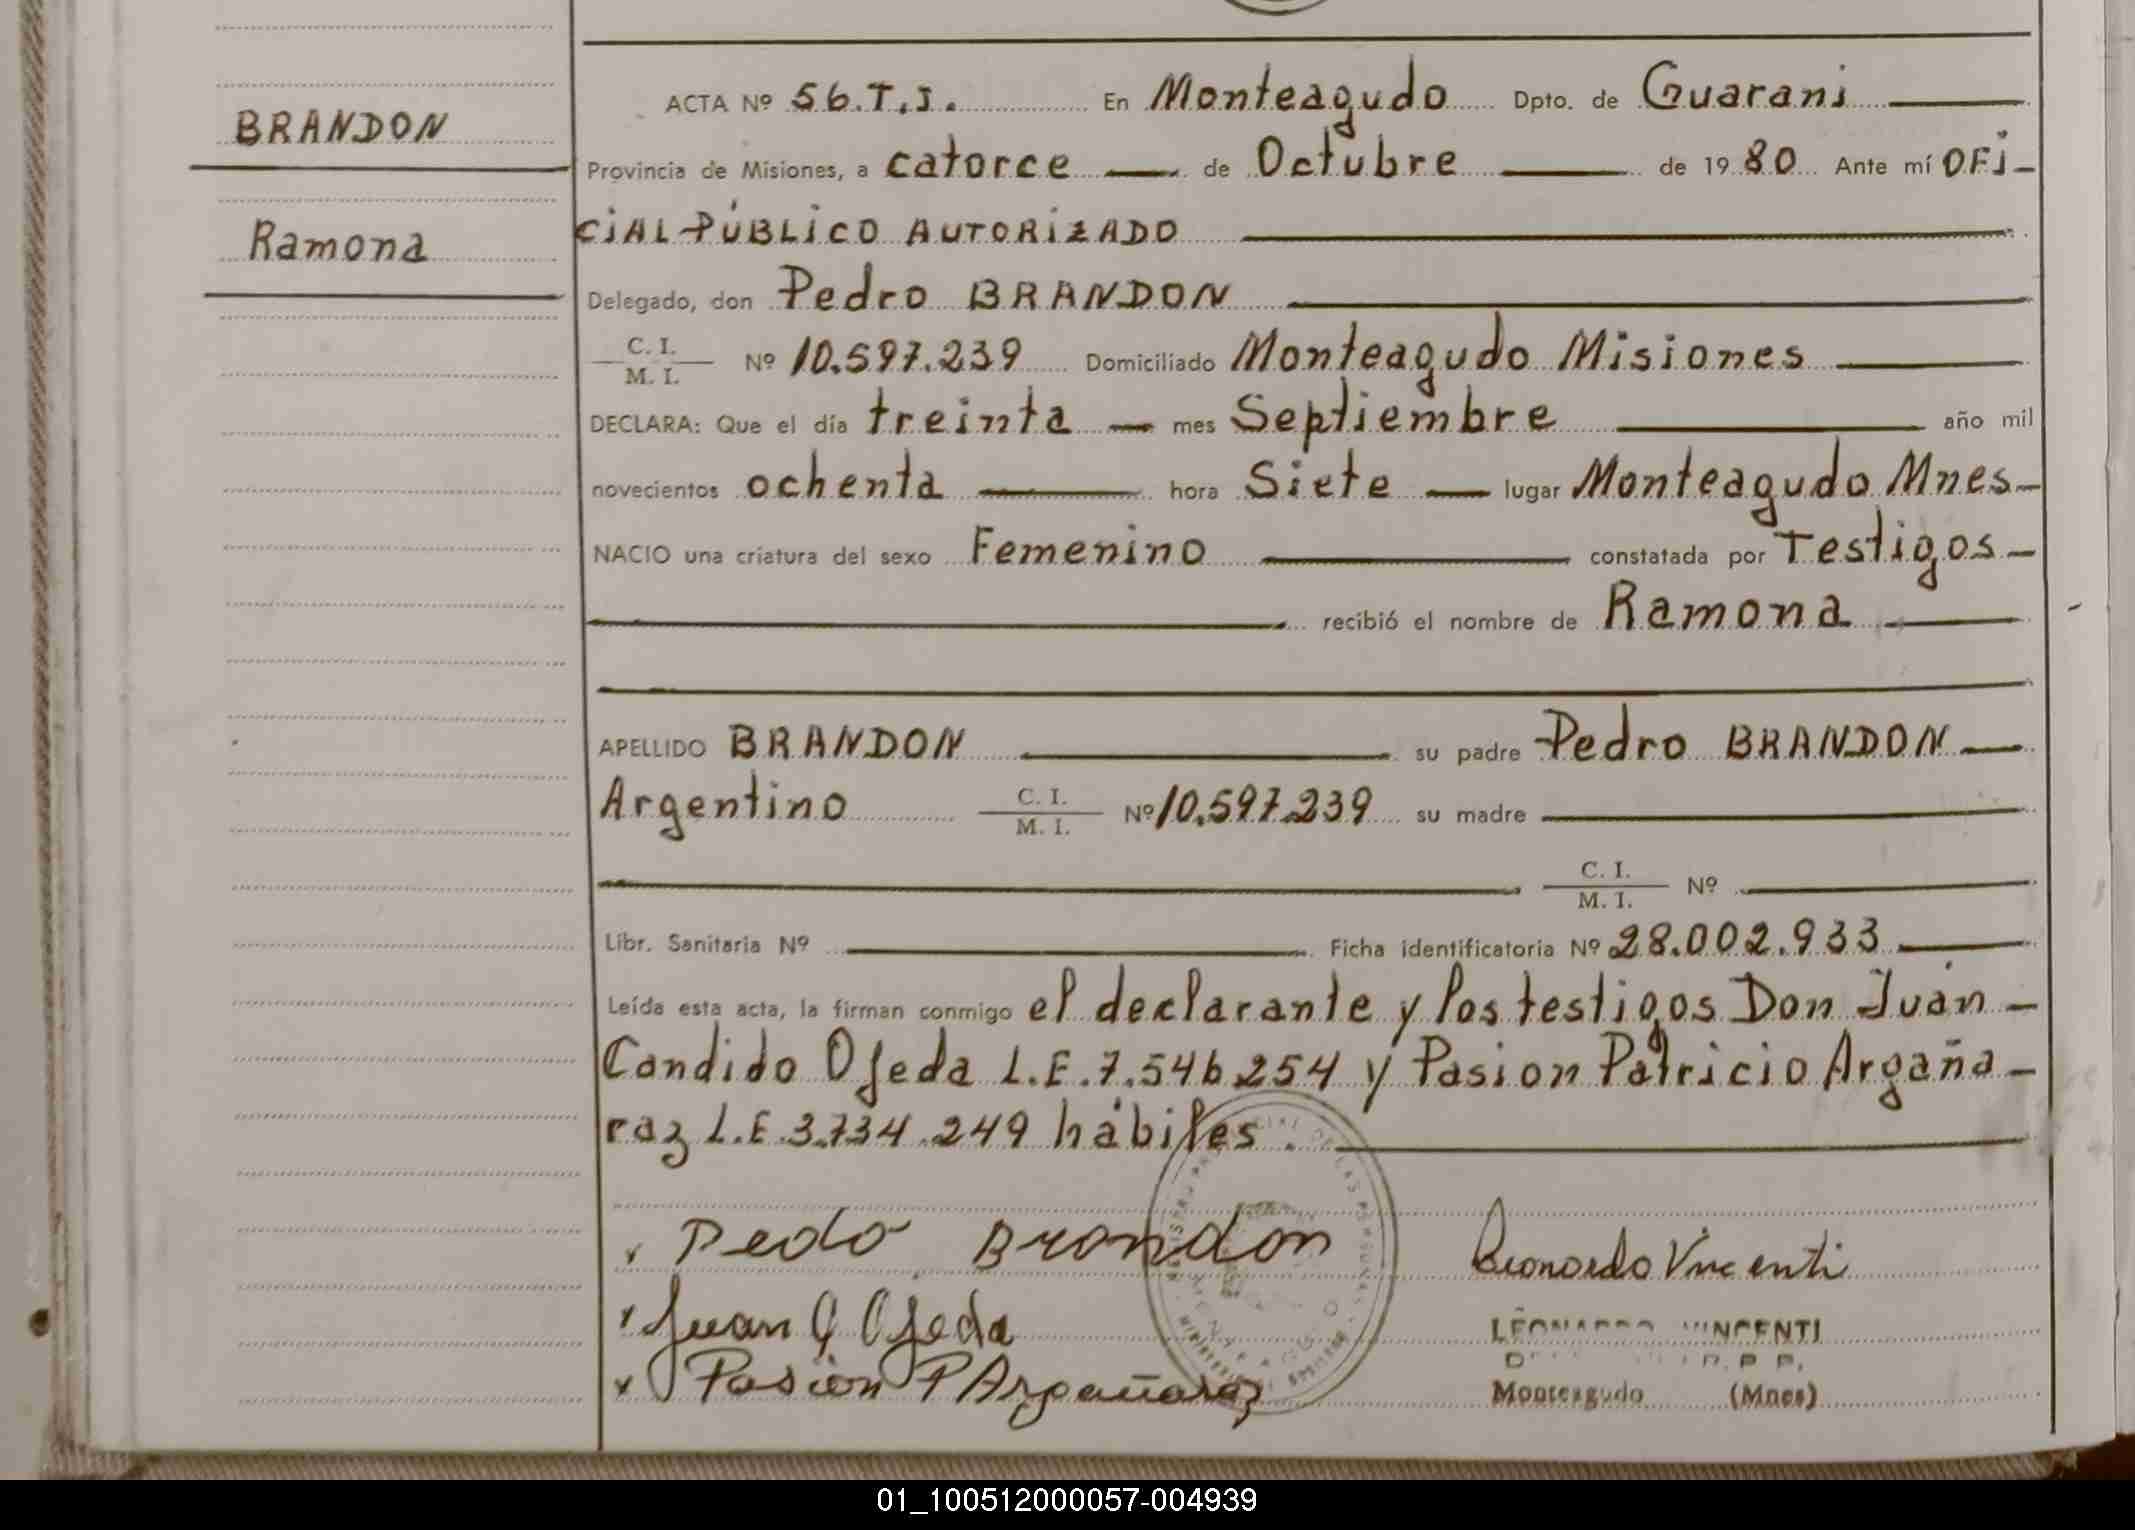 BRANDON
Ramona
ACTA Nº 56.T.I. En Monteagudo Dpto. de Guarani
Provincia de Misiones, a catorce de Octubre de 1980 Ante mí OFi-
CiAL PÚBLiCO AUTORiZADO
Delegado, don Pedro BRANDON
C. I.
M. I. Nº 10.597.239 Domiciliado Monteagudo Misiones
DECLARA: Que el día treinta mes Septiembre año mil
novecientos ochenta hora Siete lugar Monteagudo Mnes-
NACIO una criatura del sexo Femenino constatada por Testigos
recibió el nombre de Ramona
APELLIDO BRANDON su padre Pedro BRANDON
Argentino C. I. M. I. Nº 10.597.239 su madre
C. I. M. I. Nº
Libr. Sanitaria Nº Ficha identificatoria Nº 28.002.933
Leída esta acta, la firman conmigo el declarante y los testigos Don Juan
Candido Ojeda L.E.7.546.254 y Pasion Patricio Argaña-
raz L.E.3.734.249 hábiles.
Pedo Brandon
Leonardo Vincenti
Juan C Ojeda
LEONARDO VINCENTI
Pasion P Argañaraz
Monteagudo (Mnes)
01_100512000057-004939